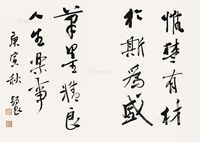 惟楚有材
於斯為盛
筆墨精良
人生樂事
庚寅秋